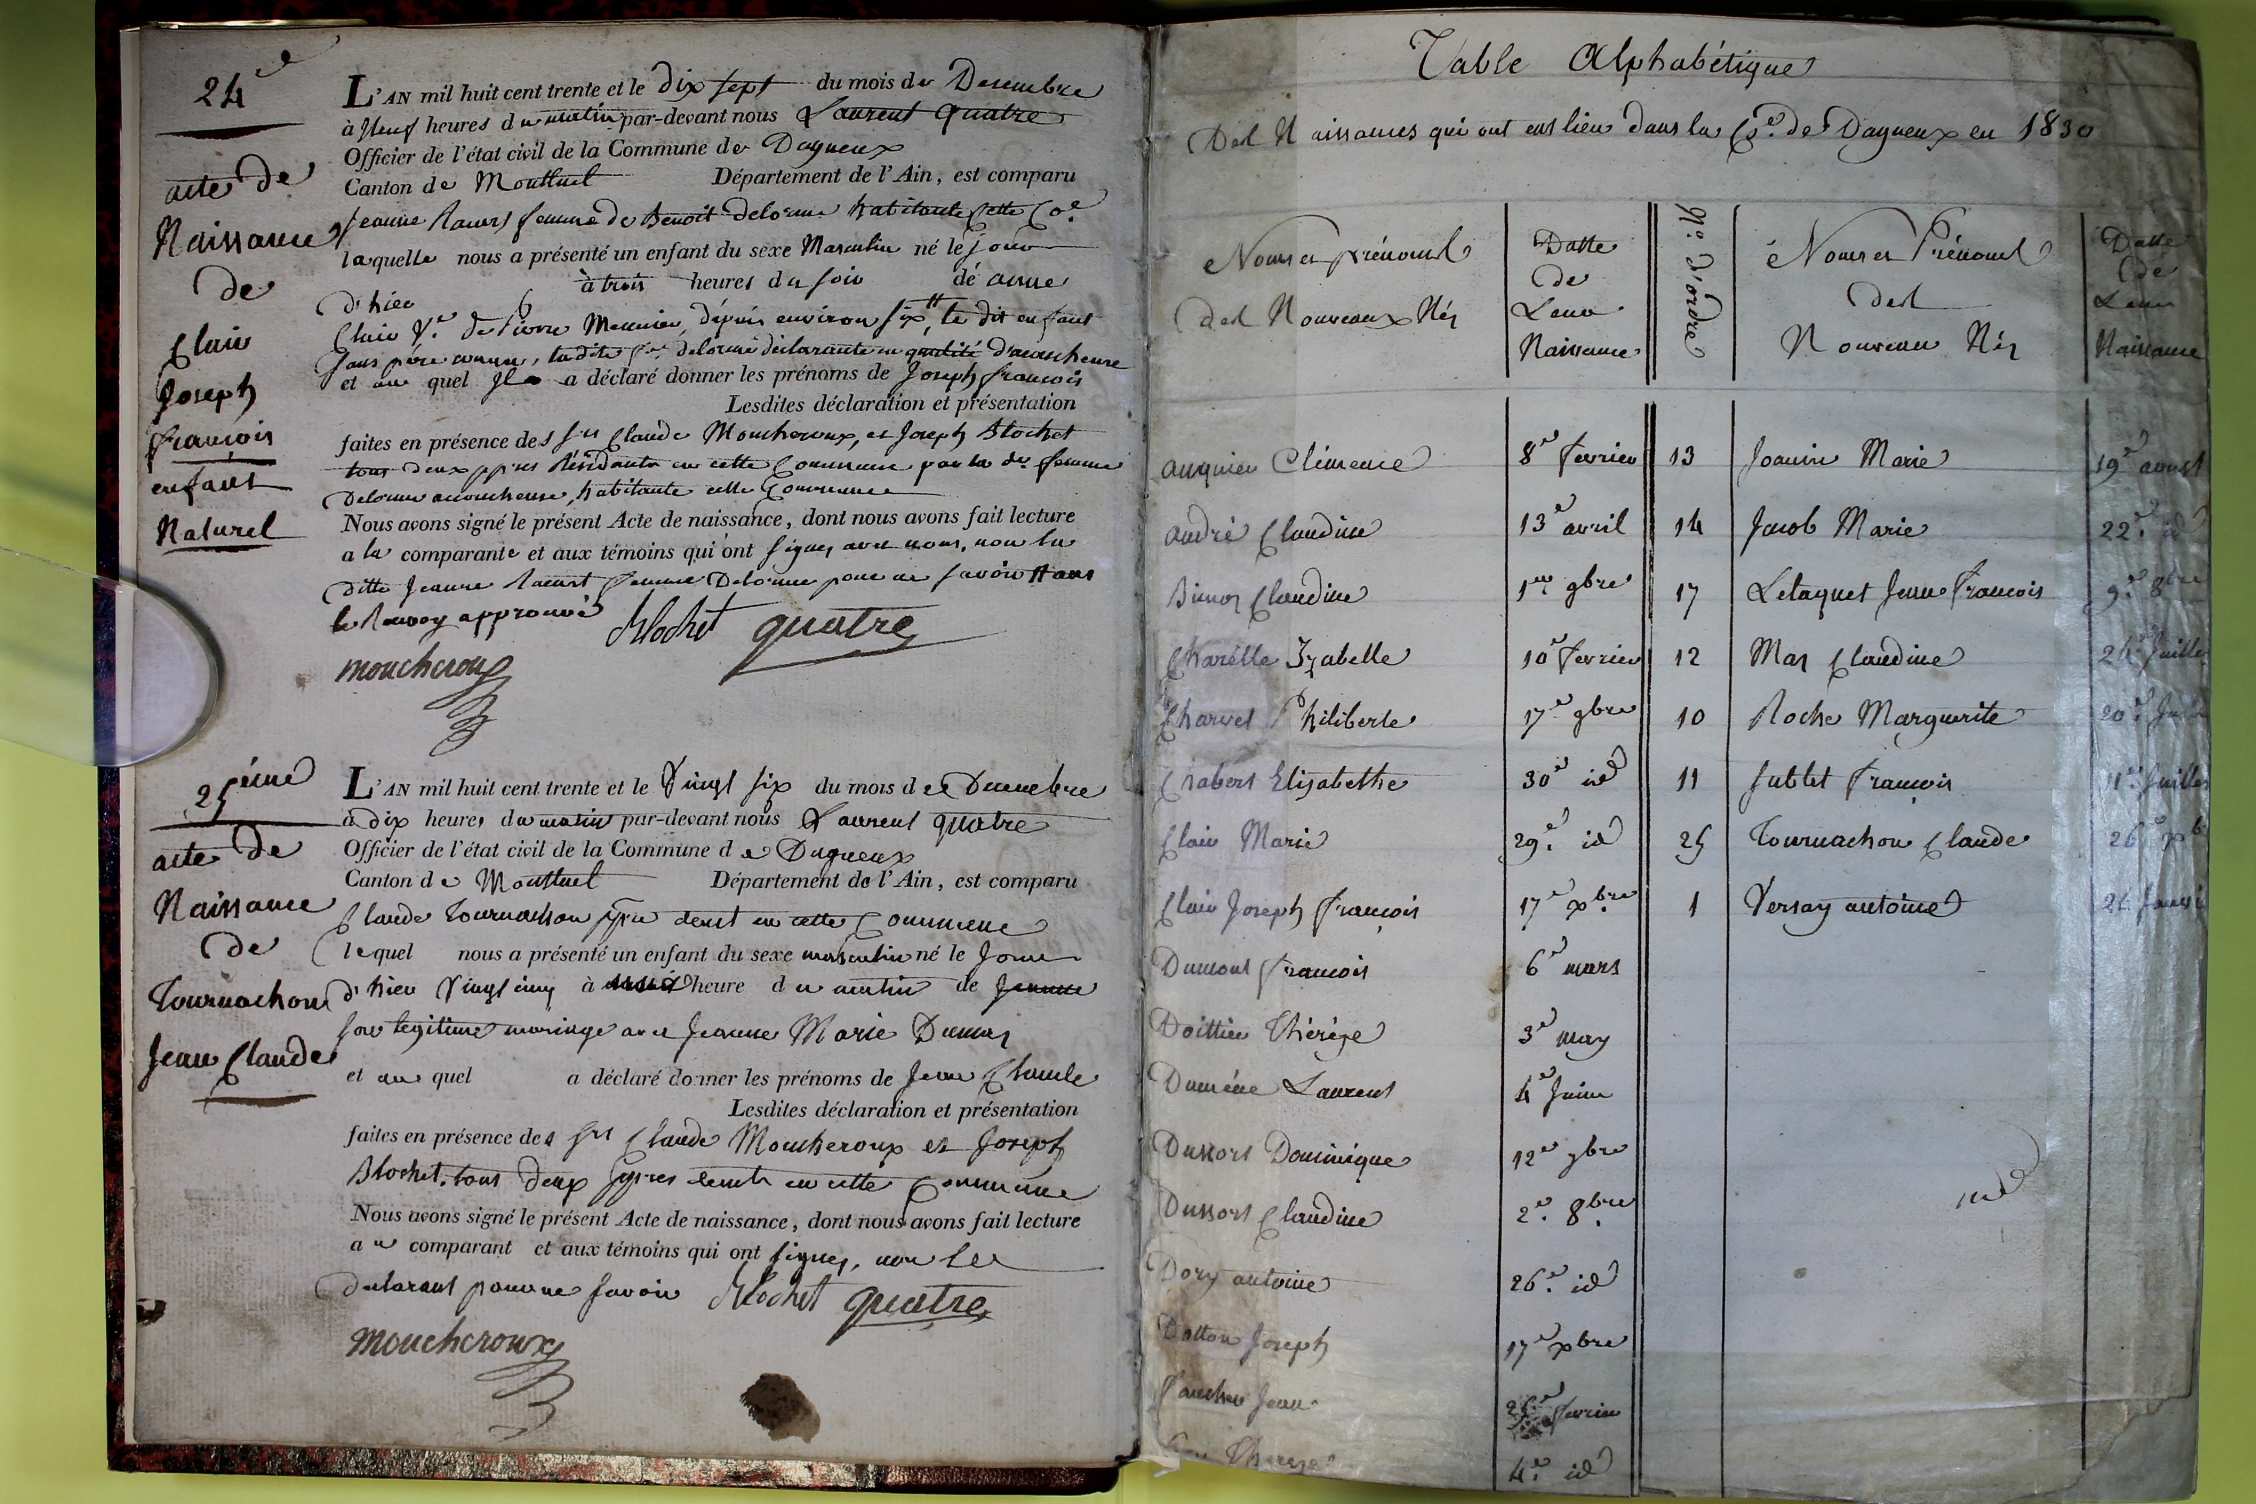 24e
acte de
Naissance
de
Clair
Joseph
François
enfant
Naturel
L'AN mil huit cent trente et le dix sept du mois de Decembre
à Neuf heures du matin par-devant nous Laurent Quatre
Officier de l'état civil de la Commune de Dagneux
Canton de Montluel Département de l'Ain, est comparu
Jeanne femme de Benoit delorme habitante Cette Co.e
laquelle nous a présenté un enfant du sexe Masculin né le jour
d'hier à trois heures du soir de anne
Clair V.e de pierre Meunier, dépuis environ six, le dit enfant
sans père connu, la dite f.e delorme déclarante en qualité d'acoucheuse
et au quel Il a déclaré donner les prénoms de Joseph françois
Lesdites déclaration et présentation
faites en présence des srs Claude Moucheroux, et Joseph Blochet
tous deux pp.res Résidants en cette Commune par la d.e femme
Delorme acoucheuse, habitante cette Commune
Nous avons signé le présent Acte de naissance, dont nous avons fait lecture
a la comparante et aux témoins qui ont signés avec nous, non la
ditte Jeanne femme Delorme pour ne savoir
le Renvoy approuvé Blochet quatre
moucheroux
25éme
acte de
Naissance
de
Tournachon
Jean Claude
L'AN mil huit cent trente et le Vingt six du mois de Decembre
à dix heures du matin par-devant nous Laurent quatre
Officier de l'état civil de la Commune de Dagneux
Canton de Montluel Département de l'Ain, est comparu
Claude Tournachon ppre demt en cette Commune
lequel nous a présenté un enfant du sexe masculin né le Jour
d'hier Vingt cinq à heure du matin de Jeanne
son legitime mariage avec Jeanne Marie Dumas
et au quel a déclaré donner les prénoms de Jean Claude
Lesdites déclaration et présentation
faites en présence des srs Claude Moucheroux et Joseph
Blochet, tous deux ppres demts en cette Commune
Nous avons signé le présent Acte de naissance, dont nous avons fait lecture
au comparant et aux témoins qui ont signés, non le
declarant pour ne savoir Blochet quatre
moucheroux
Table Alphabétique
Des Naissances qui ont eut lieu dans la Co.e de Dagneux en 1830
Noms et prénoms des Nouveaux Nés
Datte de Leur Naissance
N.o d'ordre
Noms et Prénoms des Nouveau Nés
Datte de Leur Naissance
Clémence 8e fevrier 13 Joanin Marie 19e aoust
andré Claudine 13e avril 14 Jacob Marie 22e id
Claudine 1er 9bre 17 Letaquet Jean François 9e 8bre
Charélle Izabelle 10e fevrier 12 Mas Claudine 24e Juillet
Charvet Philiberte 17e 9bre 10 Roche Marguerite 20e
Chabert Elisabethe 30e id 11 Sublet François 11e Juillet
Clair Marie 29e id 25 Tournachon Claude 26 xb
Clair Joseph François 17e xbre 1 Versay antoine
Dumont François 6e mars
Doittier Thérèze 3e may
Duméne Laurent 4e Juin
Dussort Dominique 12e 9bre
Dussort Claudine 2e 8bre
Dory antoine 26e id
Dotton Joseph 17e xbre
Faucher Jean fevrier
Thereze 4e id